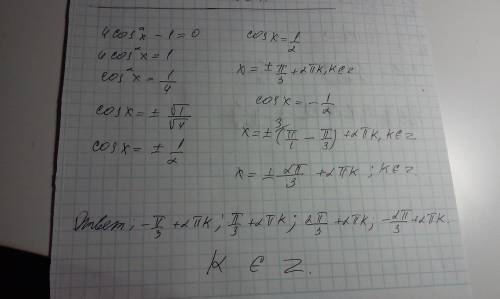 4cos²x - 1 = 0
4cos²x = 1
cos²x = 1/4
cosx = ± √1/√4
cosx = ± 1/2
cosx = 1/2
x = ± π/3 + 2πk, k∈z
cosx = - 1/2
x = ± (π/1 - π/3) + 2πk, k∈z
x = ± 2π/3 + 2πk ; k∈z.
Ответ: - π/3 + 2πk ; π/3 + 2πk ; 2π/3 + 2πk ; - 2π/3 + 2πk.
K ∈ Z.